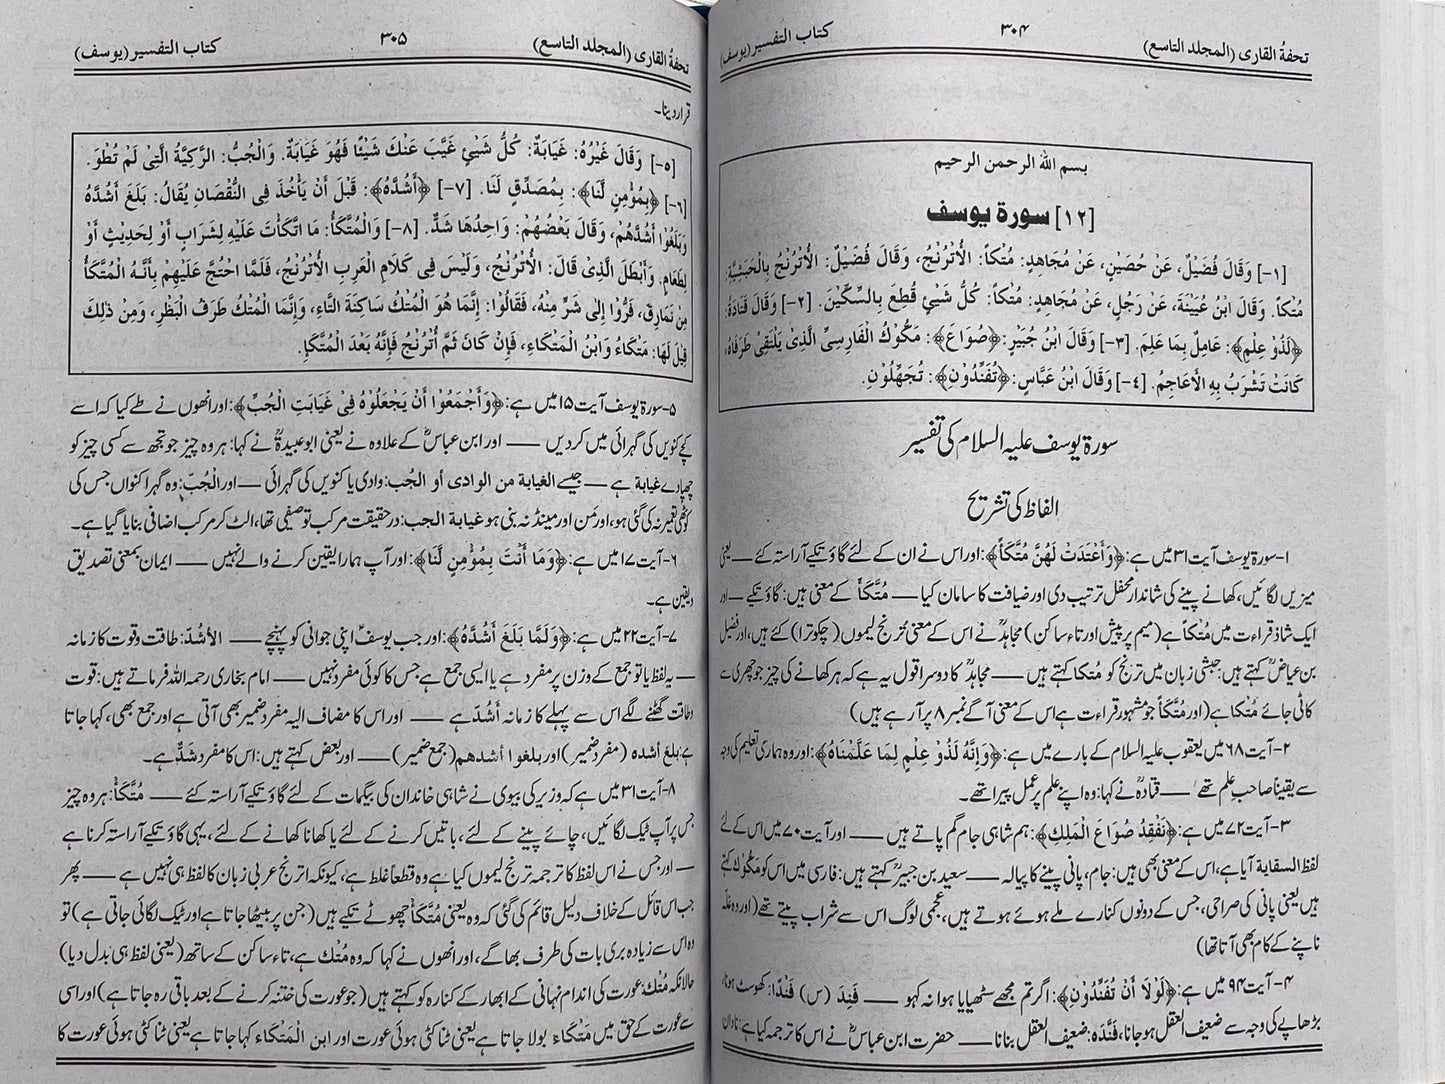 تحفۃ القاری (المجلد التاسع)
۳۰۴
کتاب التفسیر (یوسف)
بسم الله الرحمن الرحیم
[۱۲] سورة یوسف
[۱-] وَقَالَ فُضَيْلٌ، عَنْ حُصَيْنٍ، عَنْ مُجَاهِدٍ: مُتْكَأً: الْأُتْرُنْجُ، وَقَالَ فُضَيْلٌ: الْأُتْرُنْجُ بِالْحَبَشِيَّةِ:
مُتْكًا. وَقَالَ ابْنُ عُيَيْنَةَ، عَنْ رَجُلٍ، عَنْ مُجَاهِدٍ: مُتْكًا: كُلُّ شَيْئٍ قُطِعَ بِالسِّكِّيْنِ. [۲-] وَقَالَ قَتَادَةُ:
﴿لَذُوْ عِلْمٍ﴾: عَامِلٌ بِمَا عَلِمَ. [۳-] وَقَالَ ابْنُ جُبَيْرٍ: ﴿صُوَاعَ﴾: مَكُّوْكُ الْفَارِسِيِّ الَّذِىْ يَلْتَقِىْ طَرَفَاهُ،
كَانَتْ تَشْرَبُ بِهِ الْأَعَاجِمُ. [٤-] وَقَالَ ابْنُ عَبَّاسٍ: ﴿تُفَنِّدُوْنِ﴾: تُجَهِّلُوْنِ.
سورۃ یوسف علیہ السلام کی تفسیر
الفاظ کی تشریح
۱-سورۃ یوسف آیت ۳۱ میں ہے: ﴿وَأَعْتَدَتْ لَهُنَّ مُتَّكَأً﴾: اور اس نے ان کے لئے گاؤ تکیے آراستہ کئے — یعنی
میزیں لگائیں، کھانے پینے کی شاندار محفل ترتیب دی اور ضیافت کا سامان کیا — مُتَّكَأً کے معنی ہیں: گاؤ تکیے — اور
ایک شاذ قراءت میں مُتْكاً ہے (میم پر پیش اور تاء ساکن) مجاہدؒ نے اس کے معنی ترنج لیموں (چکوترا) کئے ہیں، اور فضیل
بن عیاضؒ کہتے ہیں: حبشی زبان میں ترنج کو مُتكا کہتے ہیں — مجاہدؒ کا دوسرا قول یہ ہے کہ ہر کھانے کی چیز جو چھری سے
کاٹی جائے مُتكا ہے (اور مُتَّكَأً جو مشہور قراءت ہے اس کے معنی آگے نمبر ۸ پر آرہے ہیں)
۲-آیت ۶۸ میں یعقوب علیہ السلام کے بارے میں ہے: ﴿وَإِنَّهُ لَذُوْ عِلْمٍ لِمَا عَلَّمْنَاهُ﴾: اور وہ ہماری تعلیم کی وجہ
سے یقیناً صاحبِ علم تھے — قتادہؒ نے کہا: وہ اپنے علم پر عمل پیرا تھے۔
۳-آیت ۷۲ میں ہے: ﴿نَفْقِدُ صُوَاعَ الْمَلِكِ﴾: ہم شاہی جام گم پاتے ہیں — اور آیت ۷۰ میں اس کے لئے
لفظ السقاية آیا ہے، اس کے معنی بھی ہیں: جام، پانی پینے کا پیالہ — سعید بن جبیرؒ کہتے ہیں: فارسی میں اس کو مَكُّوْك کہتے
ہیں یعنی پانی کی صراحی، جس کے دونوں کنارے ملے ہوئے ہوتے ہیں، عجمی لوگ اس سے شراب پیتے تھے (اور وہ غلہ
ناپنے کے کام بھی آتا تھا)
۴-آیت ۹۴ میں ہے: ﴿لَوْلَا أَنْ تُفَنِّدُوْنِ﴾: اگر تم مجھے سٹھیایا ہوا نہ کہو — فَنِدَ (س) فَنَدًا: کھوسٹ ہونا،
بڑھاپے کی وجہ سے ضعیف العقل ہو جانا، فَنَّدَه: ضعیف العقل بنانا — حضرت ابن عباسؓ نے اس کا ترجمہ کیا ہے: نادان
تحفۃ القاری (المجلد التاسع)
۳۰۵
کتاب التفسیر (یوسف)
قرار دینا۔
[٥-] وَقَالَ غَيْرُهُ: غَيَابَةٌ: كُلُّ شَيْئٍ غَيَّبَ عَنْكَ شَيْئًا فَهُوَ غَيَابَةٌ. وَالْجُبُّ: الرَّكِيَّةُ الَّتِىْ لَمْ تُطْوَ.
[٦-] ﴿بِمُؤْمِنٍ لَّنَا﴾: بِمُصَدِّقٍ لَنَا. [۷-] ﴿أَشُدَّهُ﴾: قَبْلَ أَنْ يَأْخُذَ فِى النُّقْصَانِ يُقَالُ: بَلَغَ أَشُدَّهُ
وَبَلَغُوْا أَشُدَّهُمْ، وَقَالَ بَعْضُهُمْ: وَاحِدُهَا شَدٌّ. [۸-] وَالْمُتَّكَأُ: مَا اتَّكَأْتَ عَلَيْهِ لِشَرَابٍ أَوْ لِحَدِيْثٍ أَوْ
لِطَعَامٍ. وَأَبْطَلَ الَّذِىْ قَالَ: الْأُتْرُنْجُ، وَلَيْسَ فِى كَلَامِ الْعَرَبِ الْأُتْرُنْجُ، فَلَمَّا احْتُجَّ عَلَيْهِمْ بِأَنَّهُ الْمُتَّكَأُ
مِنْ نَمَارِقَ، فَرُّوْا إِلَى شَرٍّ مِنْهُ، فَقَالُوْا: إِنَّمَا هُوَ الْمُتْكُ سَاكِنَةَ التَّاءِ، وَإِنَّمَا الْمُتْكُ طَرَفُ الْبَظْرِ، وَمِنْ ذٰلِكَ
قِيْلَ لَهَا: مَتْكَاءُ وَابْنُ الْمَتْكَاءِ، فَإِنْ كَانَ ثَمَّ أُتْرُنْجٌ فَإِنَّهُ بَعْدَ الْمُتَّكَإِ.
۵-سورۃ یوسف آیت ۱۵ میں ہے: ﴿وَأَجْمَعُوْا أَنْ يَجْعَلُوْهُ فِىْ غَيَابَتِ الْجُبِّ﴾: اور انھوں نے طے کیا کہ اسے
کچے کنویں کی گہرائی میں کر دیں — اور ابن عباسؓ کے علاوہ نے یعنی ابو عبیدہؒ نے کہا: ہر وہ چیز جو تجھ سے کسی چیز کو
چھپا دے غیابة ہے — جیسے الغيابة من الوادى أو الجُب: وادی یا کنویں کی گہرائی — اور الْجُبّ: وہ گہرا کنواں جس کی
کوٹھی تعمیر نہ کی گئی ہو، اور مَن اور مینڈ نہ بنی ہو غيابة الجب: در حقیقت مرکب توصیفی تھا، الٹ کر مرکب اضافی بنایا گیا ہے۔
۶-آیت ۱۷ میں ہے: ﴿وَمَا أَنْتَ بِمُؤْمِنٍ لَّنَا﴾: اور آپ ہمارا یقین کرنے والے نہیں — ایمان بمعنی تصدیق
ویقین ہے۔
۷-آیت ۲۲ میں ہے: ﴿وَلَمَّا بَلَغَ أَشُدَّهُ﴾: اور جب یوسفؑ اپنی جوانی کو پہنچے — الأشُدّ: طاقت وقوت کا زمانہ
— یہ لفظ یا تو جمع کے وزن پر مفرد ہے یا ایسی جمع ہے جس کا کوئی مفرد نہیں — امام بخاری رحمہ اللہ فرماتے ہیں: قوت
وطاقت گھٹنے لگے اس سے پہلے کا زمانہ أَشُدّ ہے — اور اس کا مضاف الیہ مفرد ضمیر بھی آتی ہے اور جمع بھی، کہا جاتا
ہے: بلغ أشده (مفرد ضمیر) اور بلغوا أشدهم (جمع ضمیر) — اور بعض کہتے ہیں: اس کا مفرد شَدٌّ ہے۔
۸-آیت ۳۱ میں ہے کہ وزیر کی بیوی نے شاہی خاندان کی بیگمات کے لئے گاؤ تکیے آراستہ کئے — مُتَّكَأً: ہر وہ چیز
جس پر آپ ٹیک لگائیں، چائے پینے کے لئے، باتیں کرنے کے لئے یا کھانا کھانے کے لئے، یہی گاؤ تکیے آراستہ کرنا ہے
— اور جس نے اس لفظ کا ترجمہ ترنج لیموں کیا ہے وہ قطعاً غلط ہے، کیونکہ اترنج عربی زبان کا لفظ ہی نہیں ہے — پھر
جب اس قائل کے خلاف دلیل قائم کی گئی کہ وہ یعنی مُتَّكَأً چھوٹے تکیے ہیں (جن پر بیٹھا جاتا ہے اور ٹیک لگائی جاتی ہے) تو
وہ اس سے زیادہ بری بات کی طرف بھاگے، اور انھوں نے کہا کہ وہ مُتْك ہے، تاء ساکن کے ساتھ (یعنی لفظ ہی بدل دیا)
حالانکہ مُتْك: عورت کی اندام نہانی کے ابھار کے کنارہ کو کہتے ہیں (جو عورت کی ختنہ کرنے کے بعد باقی رہ جاتا ہے) اور اسی
سے عورت کے حق میں مَتْكَاء بولا جاتا ہے یعنی ٹنا کٹی ہوئی عورت اور ابن الْمَتْكَاء کہا جاتا ہے یعنی ٹنا کٹی ہوئی عورت کا